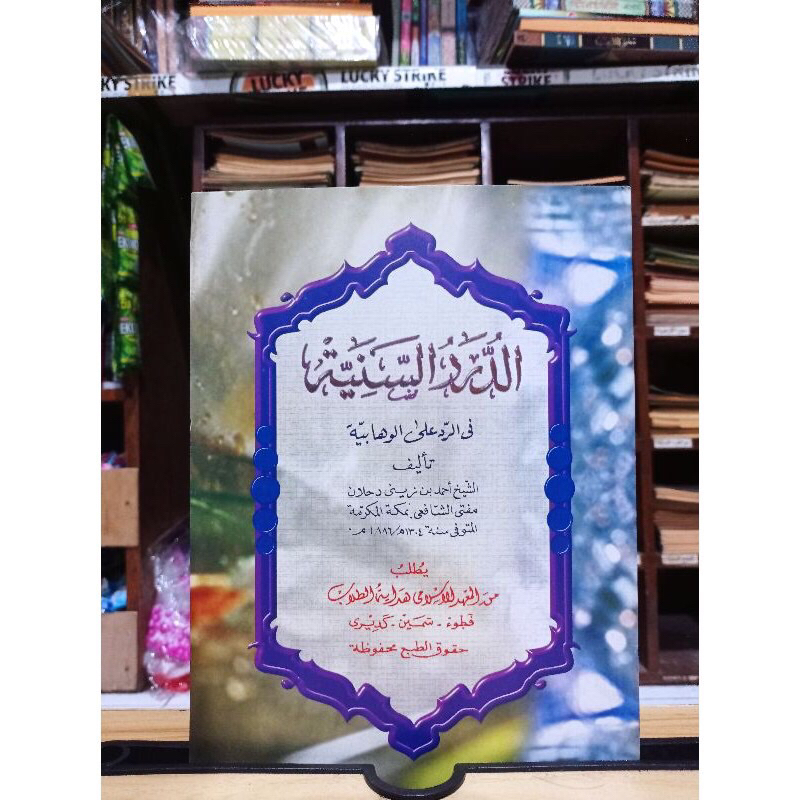 KY STRIKE
LUCKY
LUCKY STRIKE
STRIKE
الدُّرَرُ السَّنِيَّة
فى الردّ على الوهابيّة
تأليف
الشيخ أحمد بن زينى دحلان
مفتى الشافعى بمكة المكرمة
المتوفى سنة ١٣٠٤ھ/١٨٨٦م.
يطلب
من المعهد الإسلامى هداية الطلاب
فطوه - سمين - كديرى
حقوق الطبع محفوظة